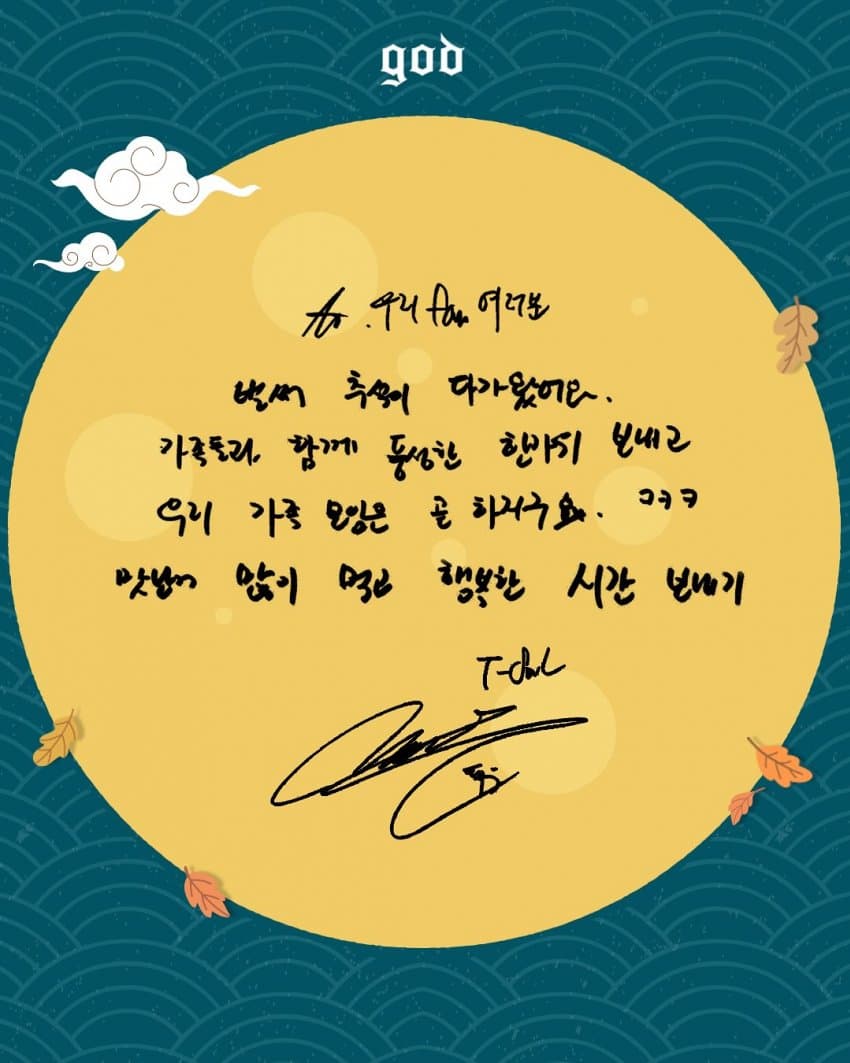 god
to. 우리 fan 여러분
벌써 추석이 다가왔어요.
가족들과 함께 풍성한 한가위 보내고
우리 가족 모임은 곧 하자구요. ㅋㅋㅋ
맛난거 많이 먹고 행복한 시간 보내기